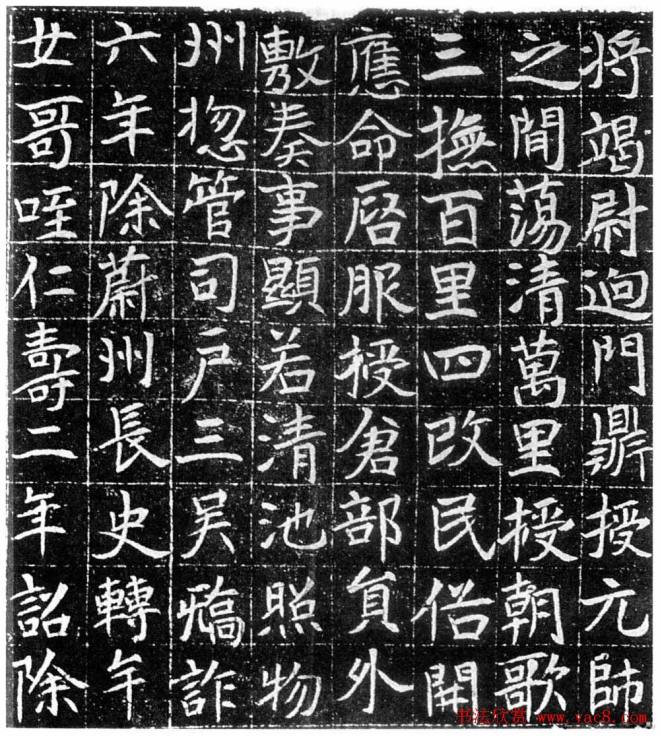 将竭尉迥門鼎授元師
之間蕩清萬里授朝歌
三撫百里四改民俗開
應命啓服授倉部員外
敷奏事顯若清池照物
州揔管司戶三吳矯詐
六年除蔚州長史轉午
女哥咥仁壽二年詔除
书法欣赏 www.yac8.com